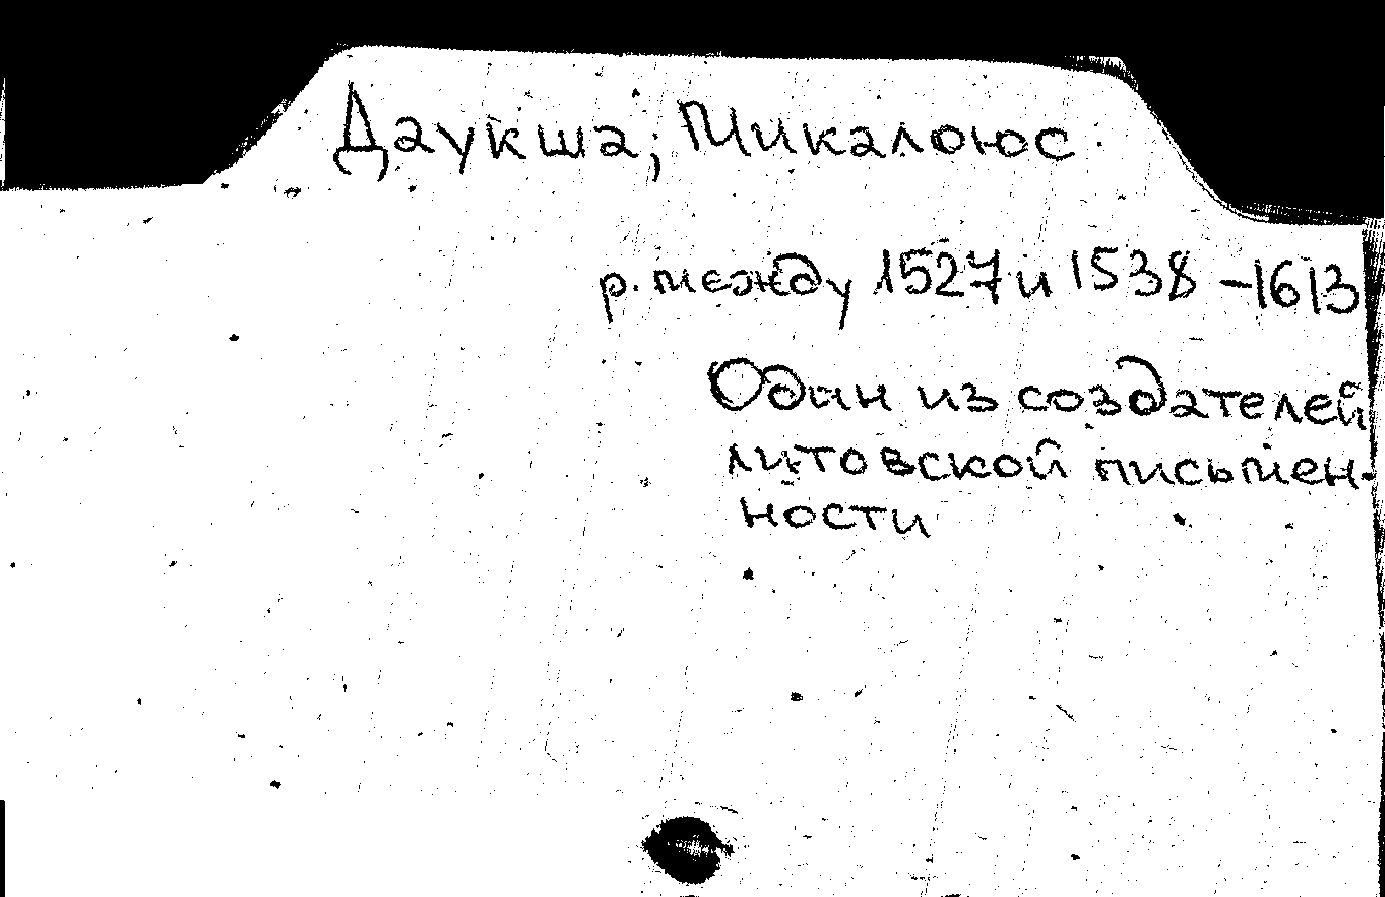 Даукша, Микалоюс
р. между 1527 и 1538 - 1613
Один из создателей
литовской письмен-
ности